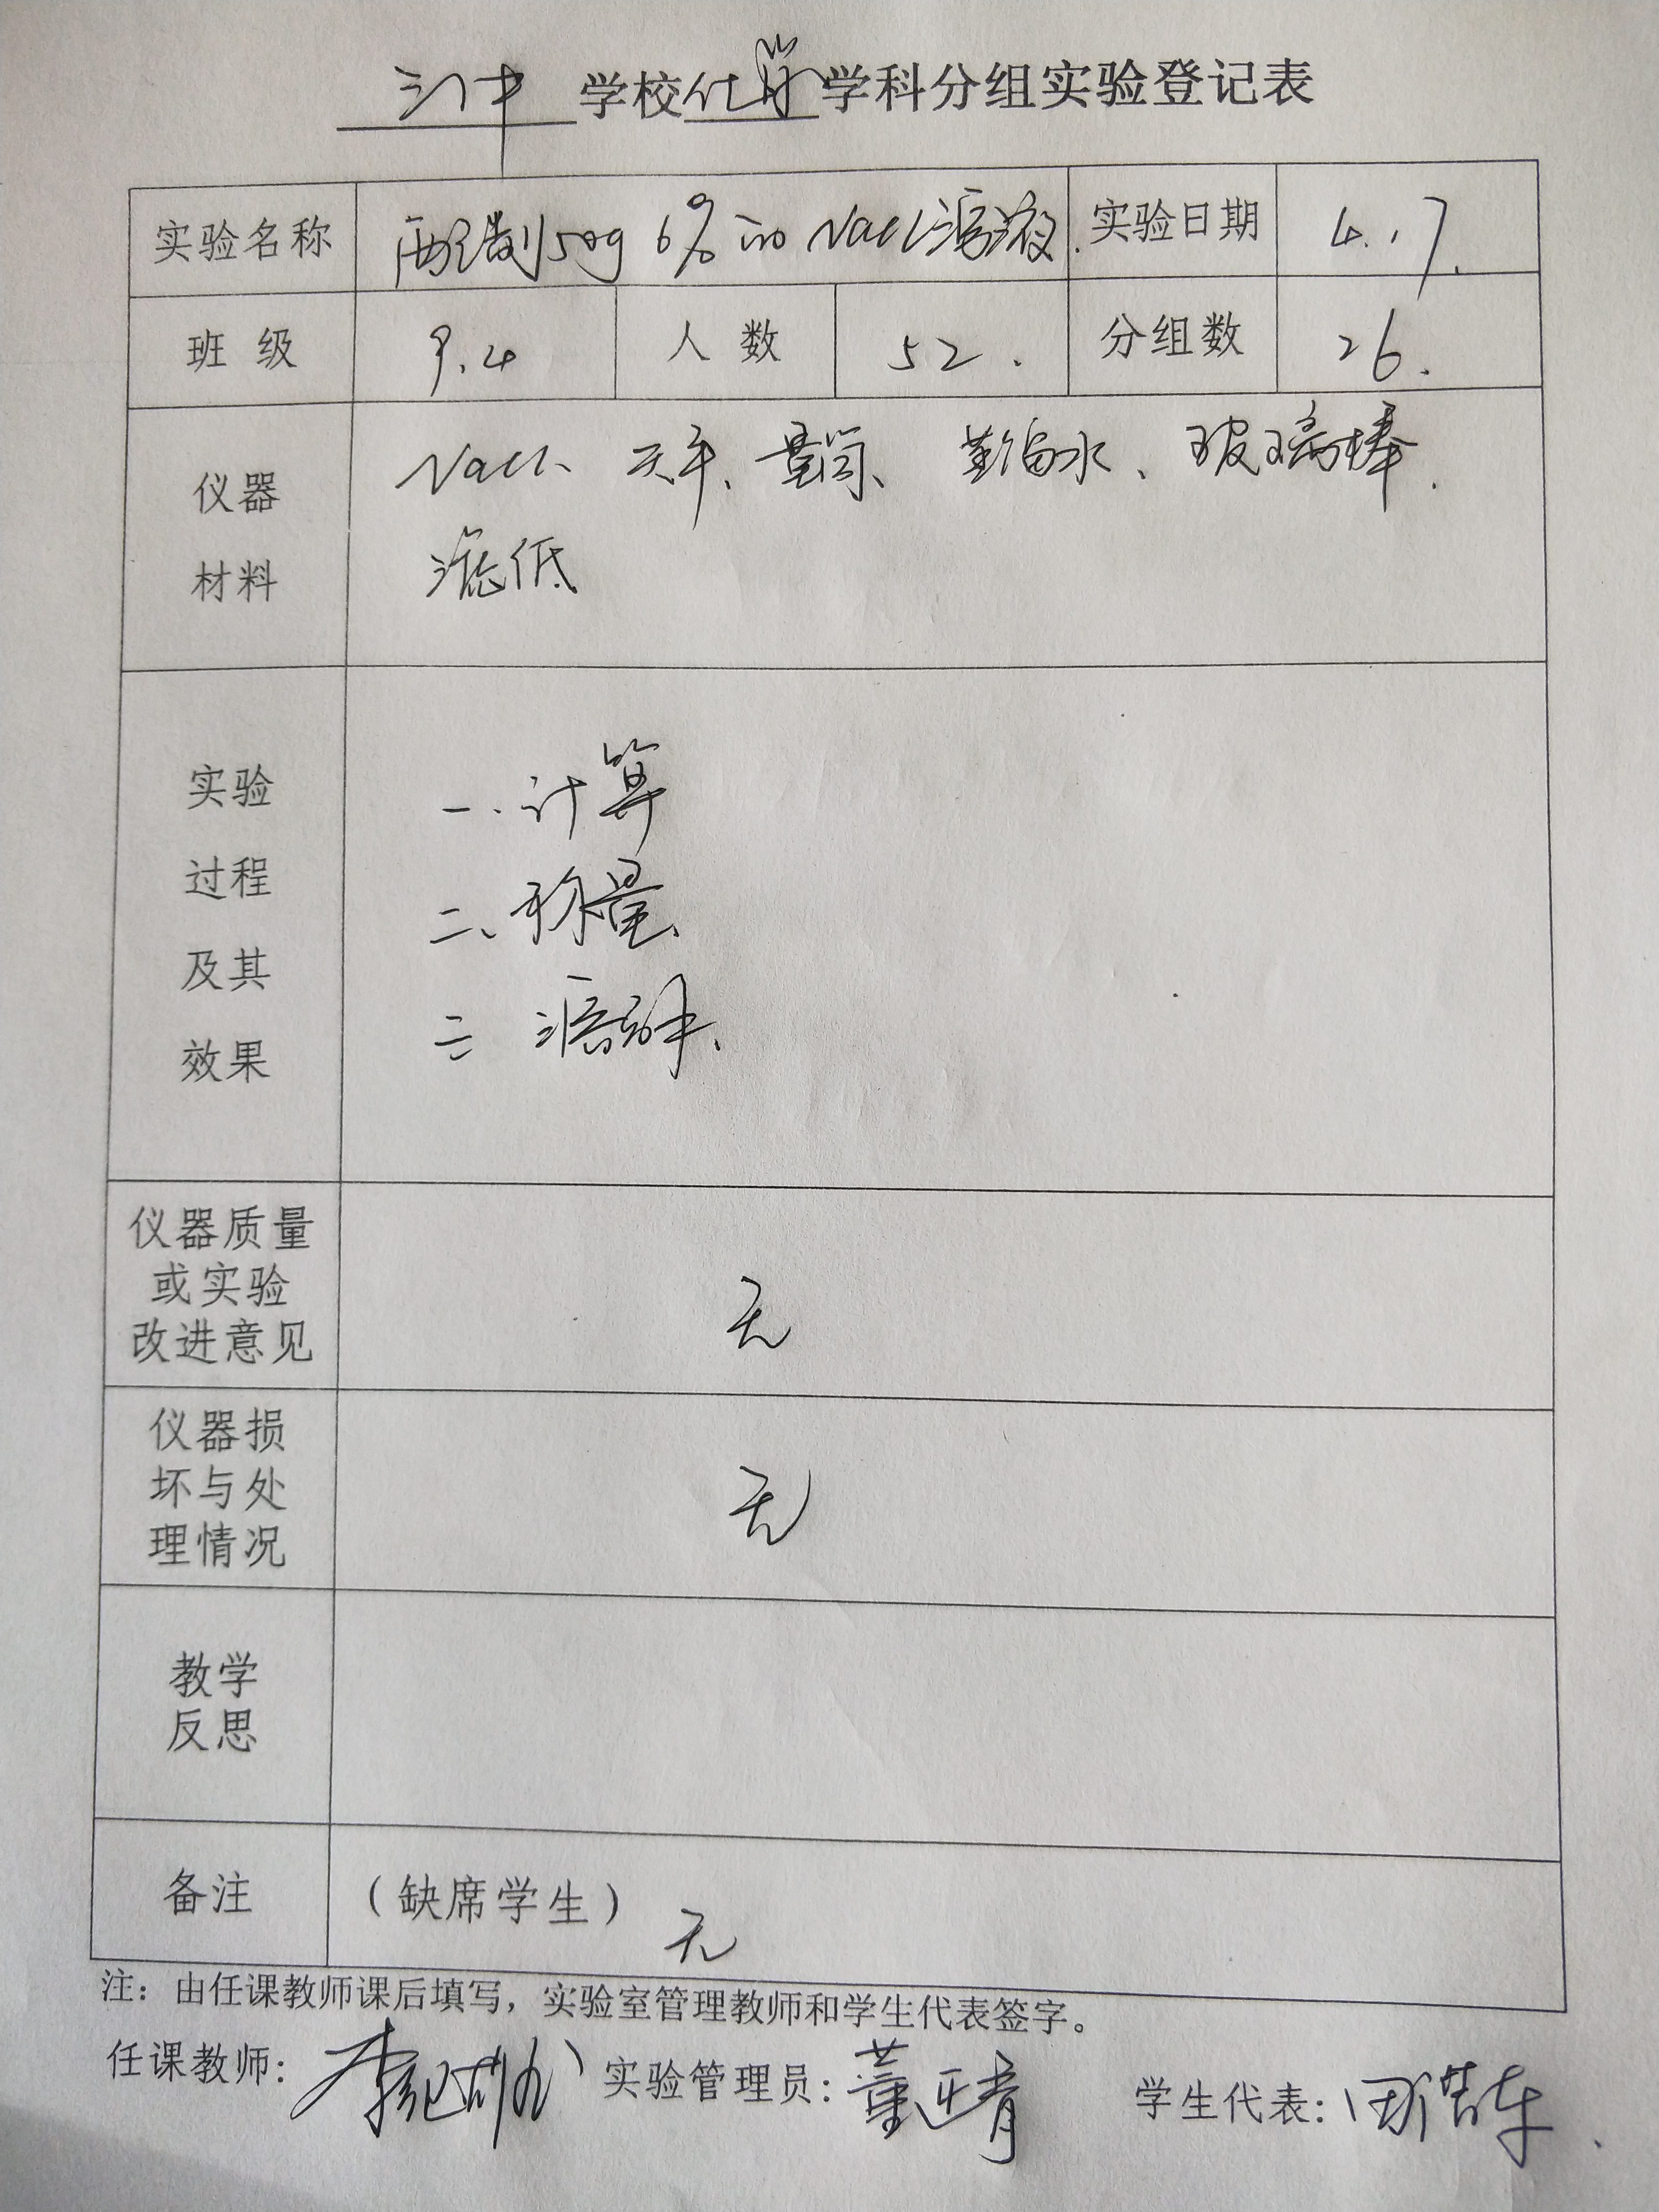 三中 学校 化学 学科分组实验登记表
实验名称 配制50g 6%的NaCl溶液. 实验日期 4.17.
班 级 9.4 人 数 52. 分组数 26.
仪器 NaCl、天平、量筒、蒸馏水、玻璃棒.
材料 滤低
实验 一.计算
过程 二、称量、
及其 三 溶解、
效果
仪器质量
或实验 无
改进意见
仪器损
坏与处 无
理情况
教学
反思
备注 （缺席学生） 无
注：由任课教师课后填写，实验室管理教师和学生代表签字。
任课教师： 实验管理员：董正青 学生代表：田浩东.